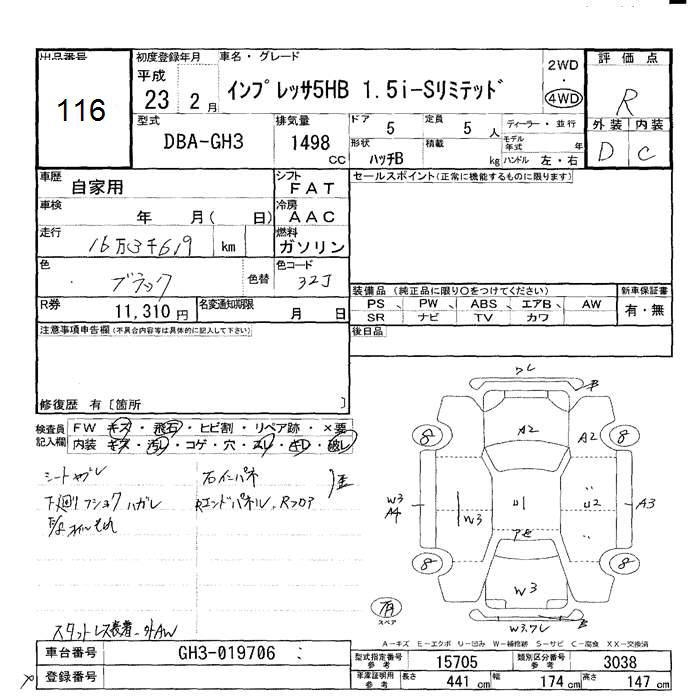 出品番号
116
初度登録年月
平成
23 2 月
車名・グレード
インプレッサ5HB 1.5i-Sリミテッド
2WD
・
4WD
評価点
R
外装 内装
D C
型式
DBA-GH3
排気量
1498
CC
ドア
5
定員
5 人
ディーラー・並行
形状
ハッチB
積載
kg
モデル年式 年
ハンドル 左・右
車歴
自家用
シフト
FAT
車検
年 月( 日)
冷房
AAC
走行
16万3千619 km
燃料
ガソリン
色
ブラック
色替
色コード
32J
R券
11,310 円
名変通知期限
月 日
セールスポイント(正常に機能するものに限ります)
装備品 (純正品に限り○をつけてください)
PS PW ABS エアB AW
SR ナビ TV カワ
新車保証書
有・無
後日品
注意事項申告欄(不具合内容等は具体的に記入して下さい)
修復歴 有[箇所 ]
検査員記入欄
FW キズ・飛石・ヒビ割・リペア跡・×要
内装 キズ・汚レ・コゲ・穴・スレ・キレ・破レ
シートヤブレ
下廻リ フショク ハガレ
オイルもれ
右インパネ
Rエンドパネル、Rフロア
スタットレス装着-外AW
ワレ
B
8
A2
A2
8
W3
A4
W3
U1
U2
A3
8
W3
8
W3.ワレ
B
スペア
A-キズ E-エクボ U-凹み W-補修跡 S-サビ C-腐食 XX-交換済
車台番号
GH3-019706
登録番号
型式指定番号
参考
15705
類別区分番号
参考
3038
車庫証明用
参考
長さ
441 cm
幅
174 cm
高さ
147 cm